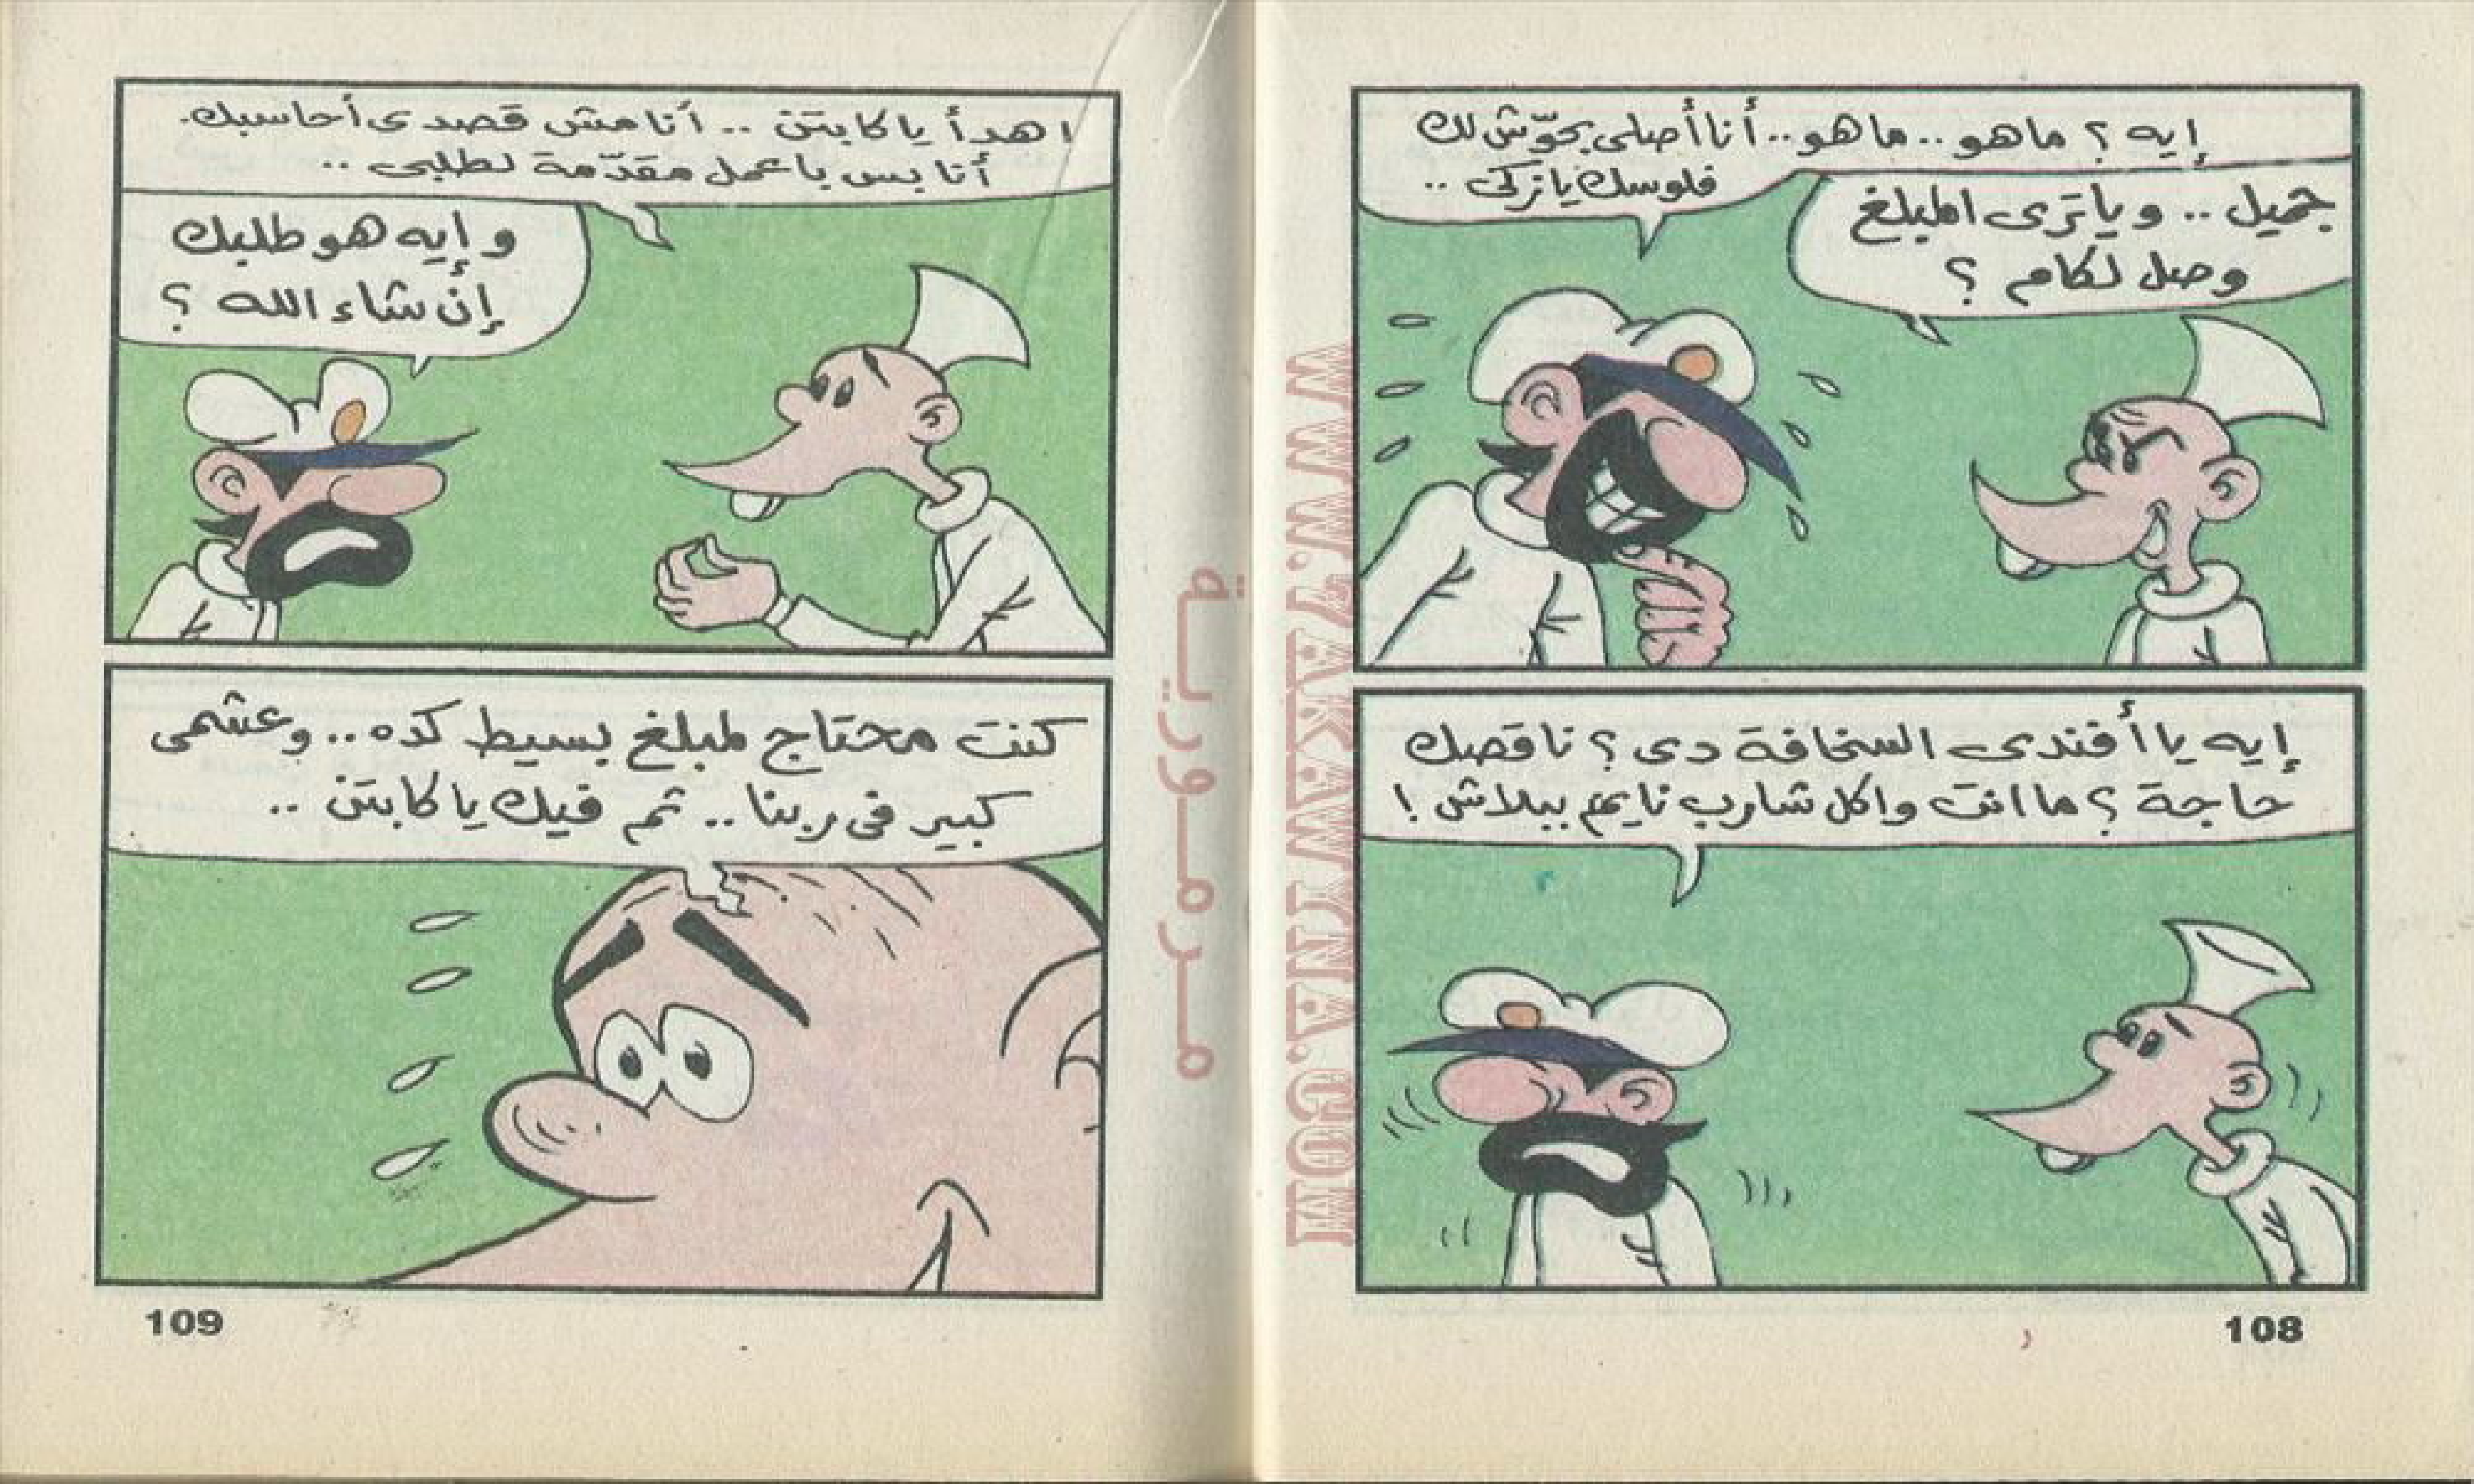 إيه ؟ ماهو .. ماهو .. أنا أصلى بحوّش لك
فلوسك يا زكى ..
جميل .. ويا ترى المبلغ
وصل لكام ؟
إيه يا أفندى السخافة دى ؟ ناقصك
حاجة ؟ ما انت واكل شارب نايم ببلاش !
108
اهدأ يا كابتن .. أنا مش قصدى أحاسبك.
أنا بس باعمل مقدّمة لطلبى ..
وإيه هو طلبك
إن شاء الله ؟
كنت محتاج لمبلغ بسيط كده .. وعشمى
كبير فى ربنا .. ثم فيك يا كابتن ..
109
WWW.7AKAWINA.COM
مرمورية